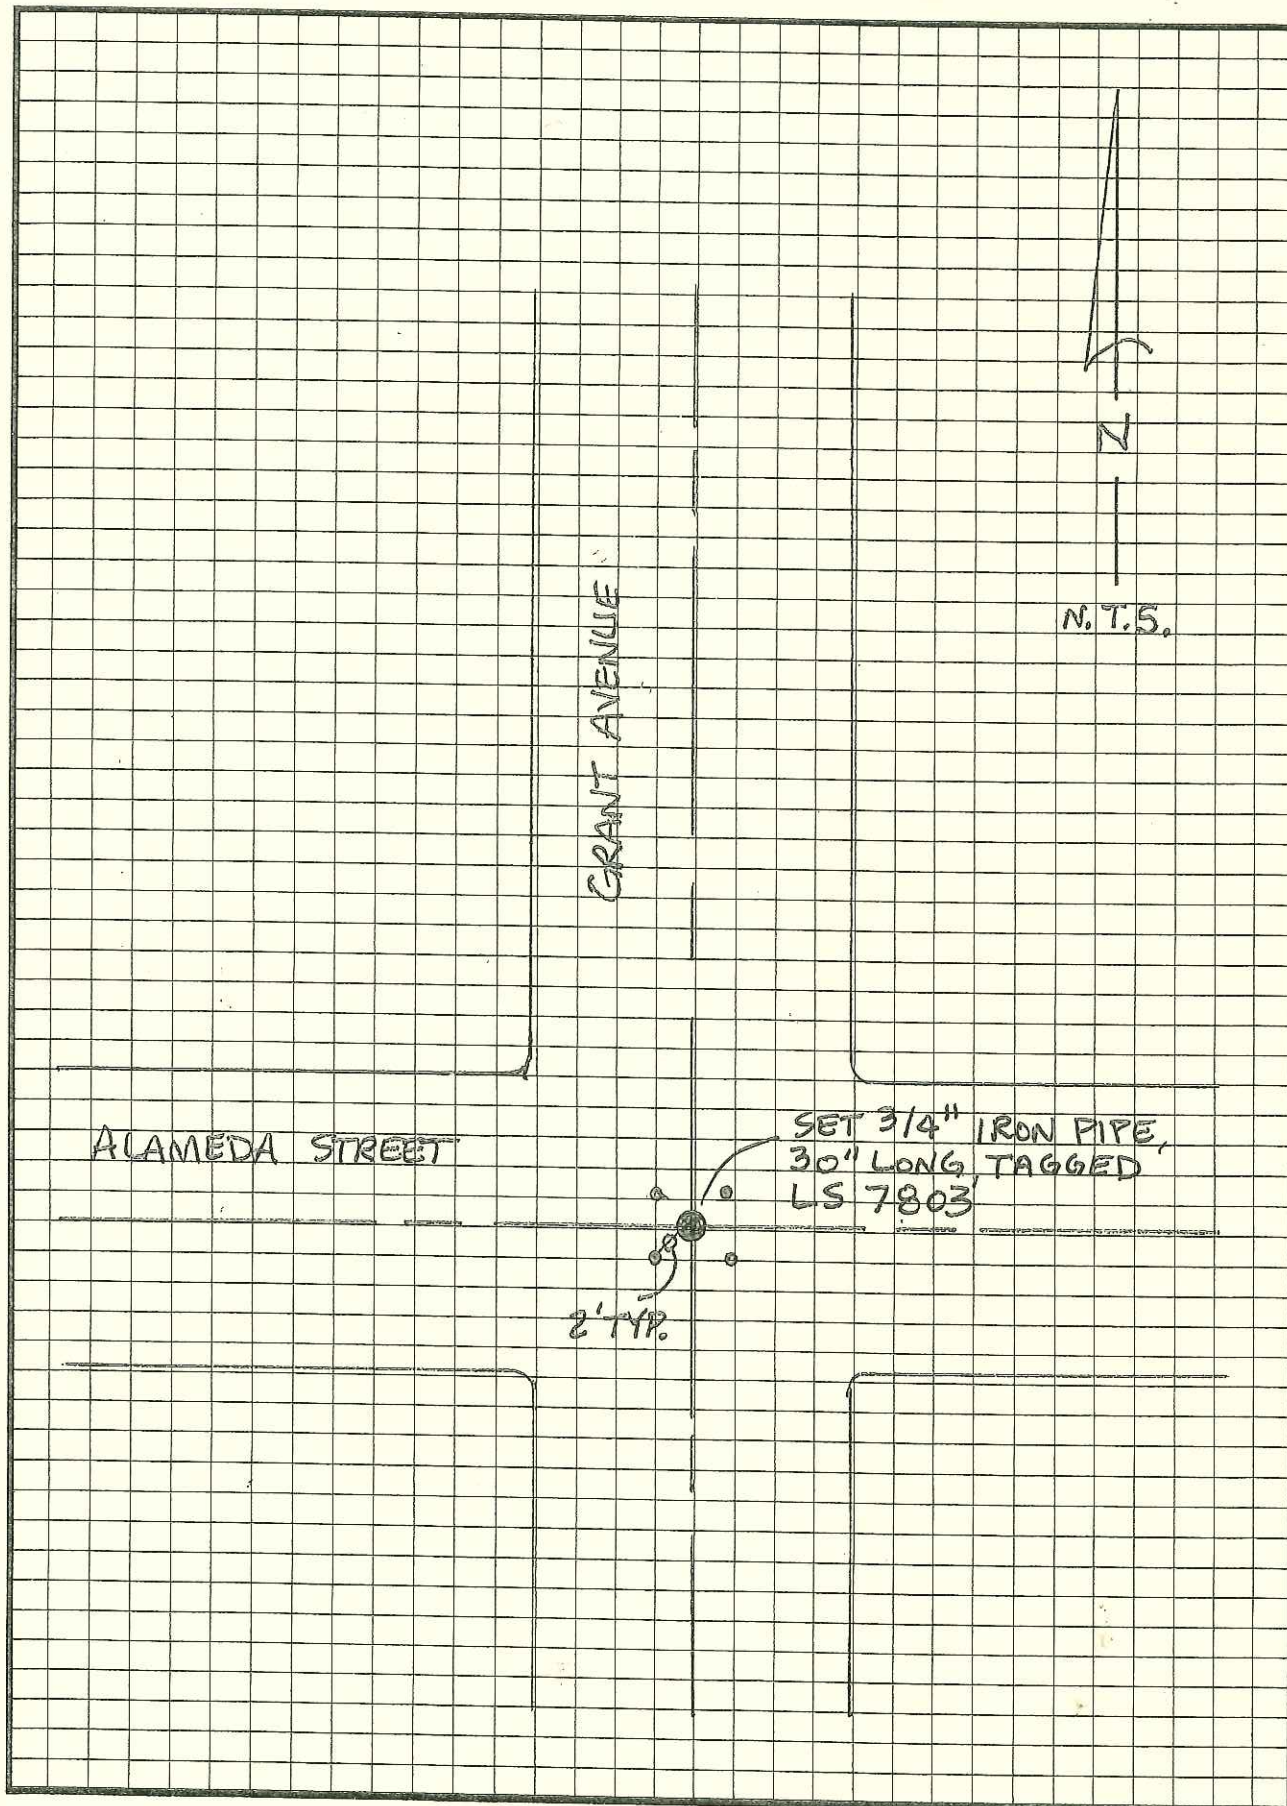 N
N.T.S.
GRANT AVENUE
ALAMEDA STREET
SET 3/4" IRON PIPE,
30" LONG, TAGGED
LS 7803
2' TYP.